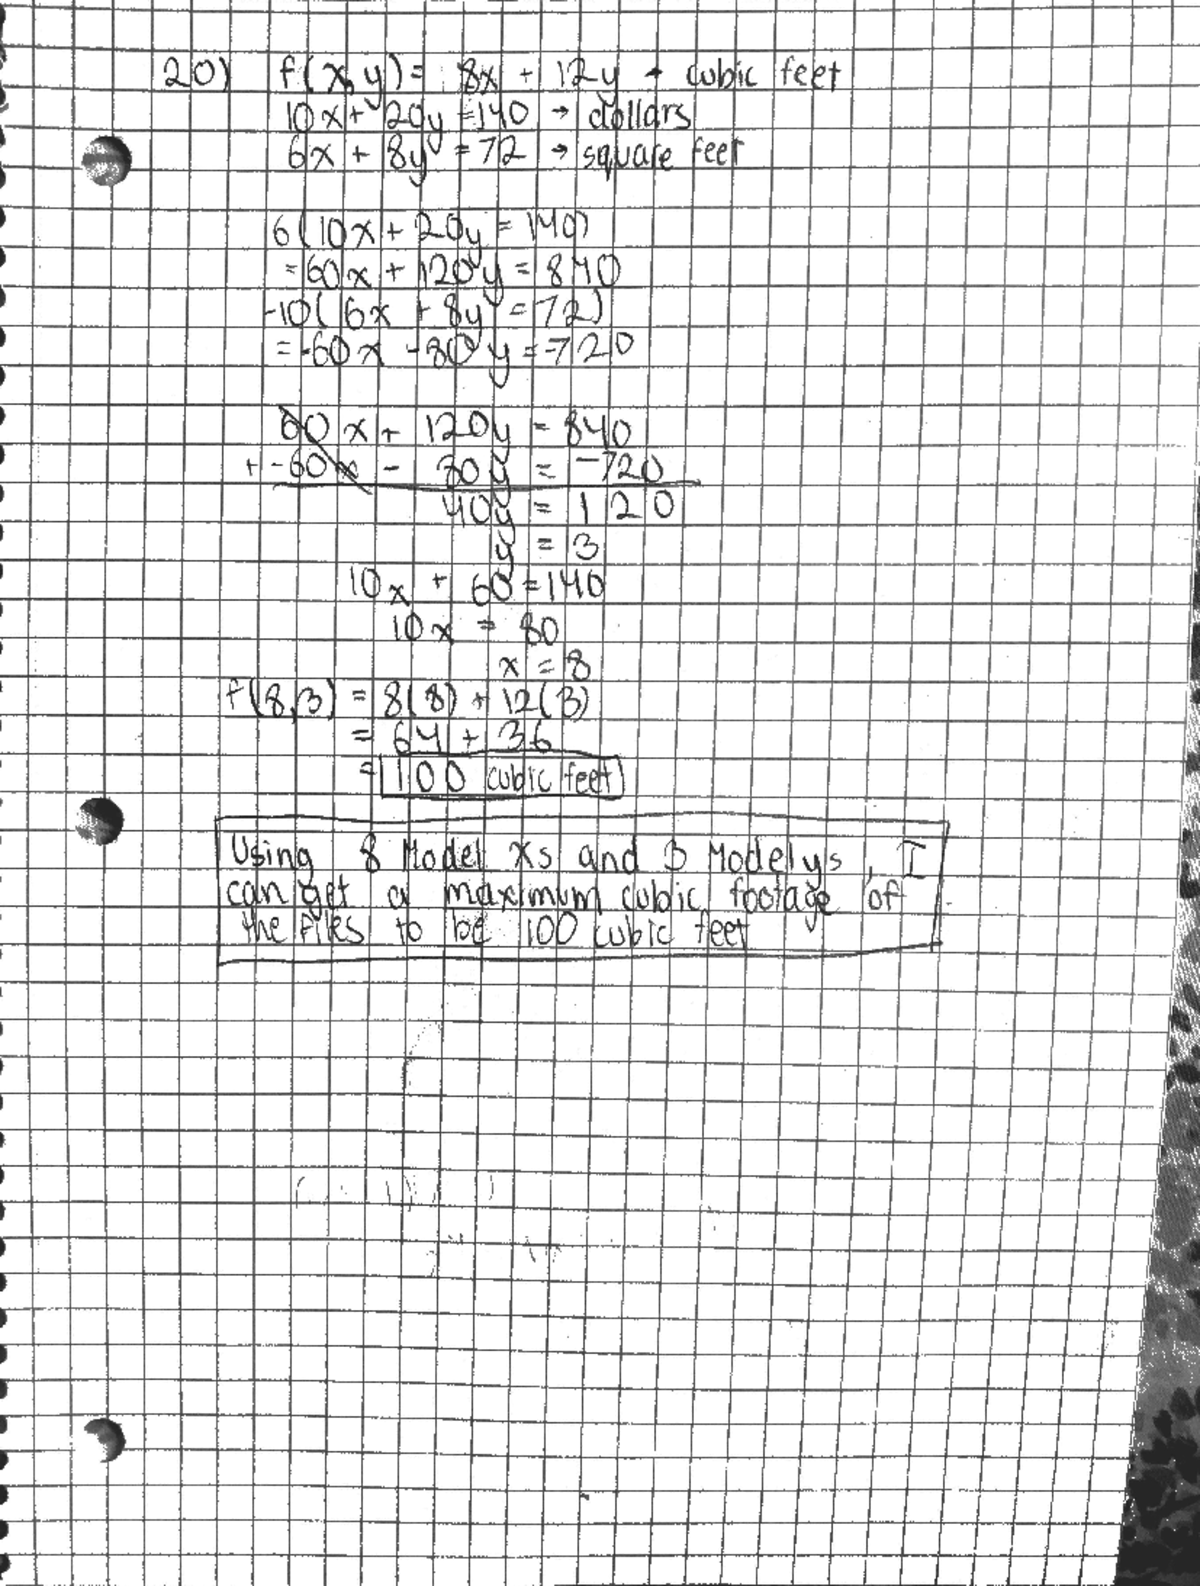 20) f(x,y) = 8x + 12y → cubic feet
10x + 20y = 140 → dollars
6x + 8y = 72 → square feet
6(10x + 20y = 140)
= 60x + 120y = 840
-10(6x + 8y = 72)
= -60x - 80y = -720
60x + 120y = 840
+ -60x - 80y = -720
40y = 120
y = 3
10x + 60 = 140
10x = 80
x = 8
f(8,3) = 8(8) + 12(3)
= 64 + 36
= 100 cubic feet
Using 8 Model xs and 3 Model ys, I
can get a maximum cubic footage of
the files to be 100 cubic feet